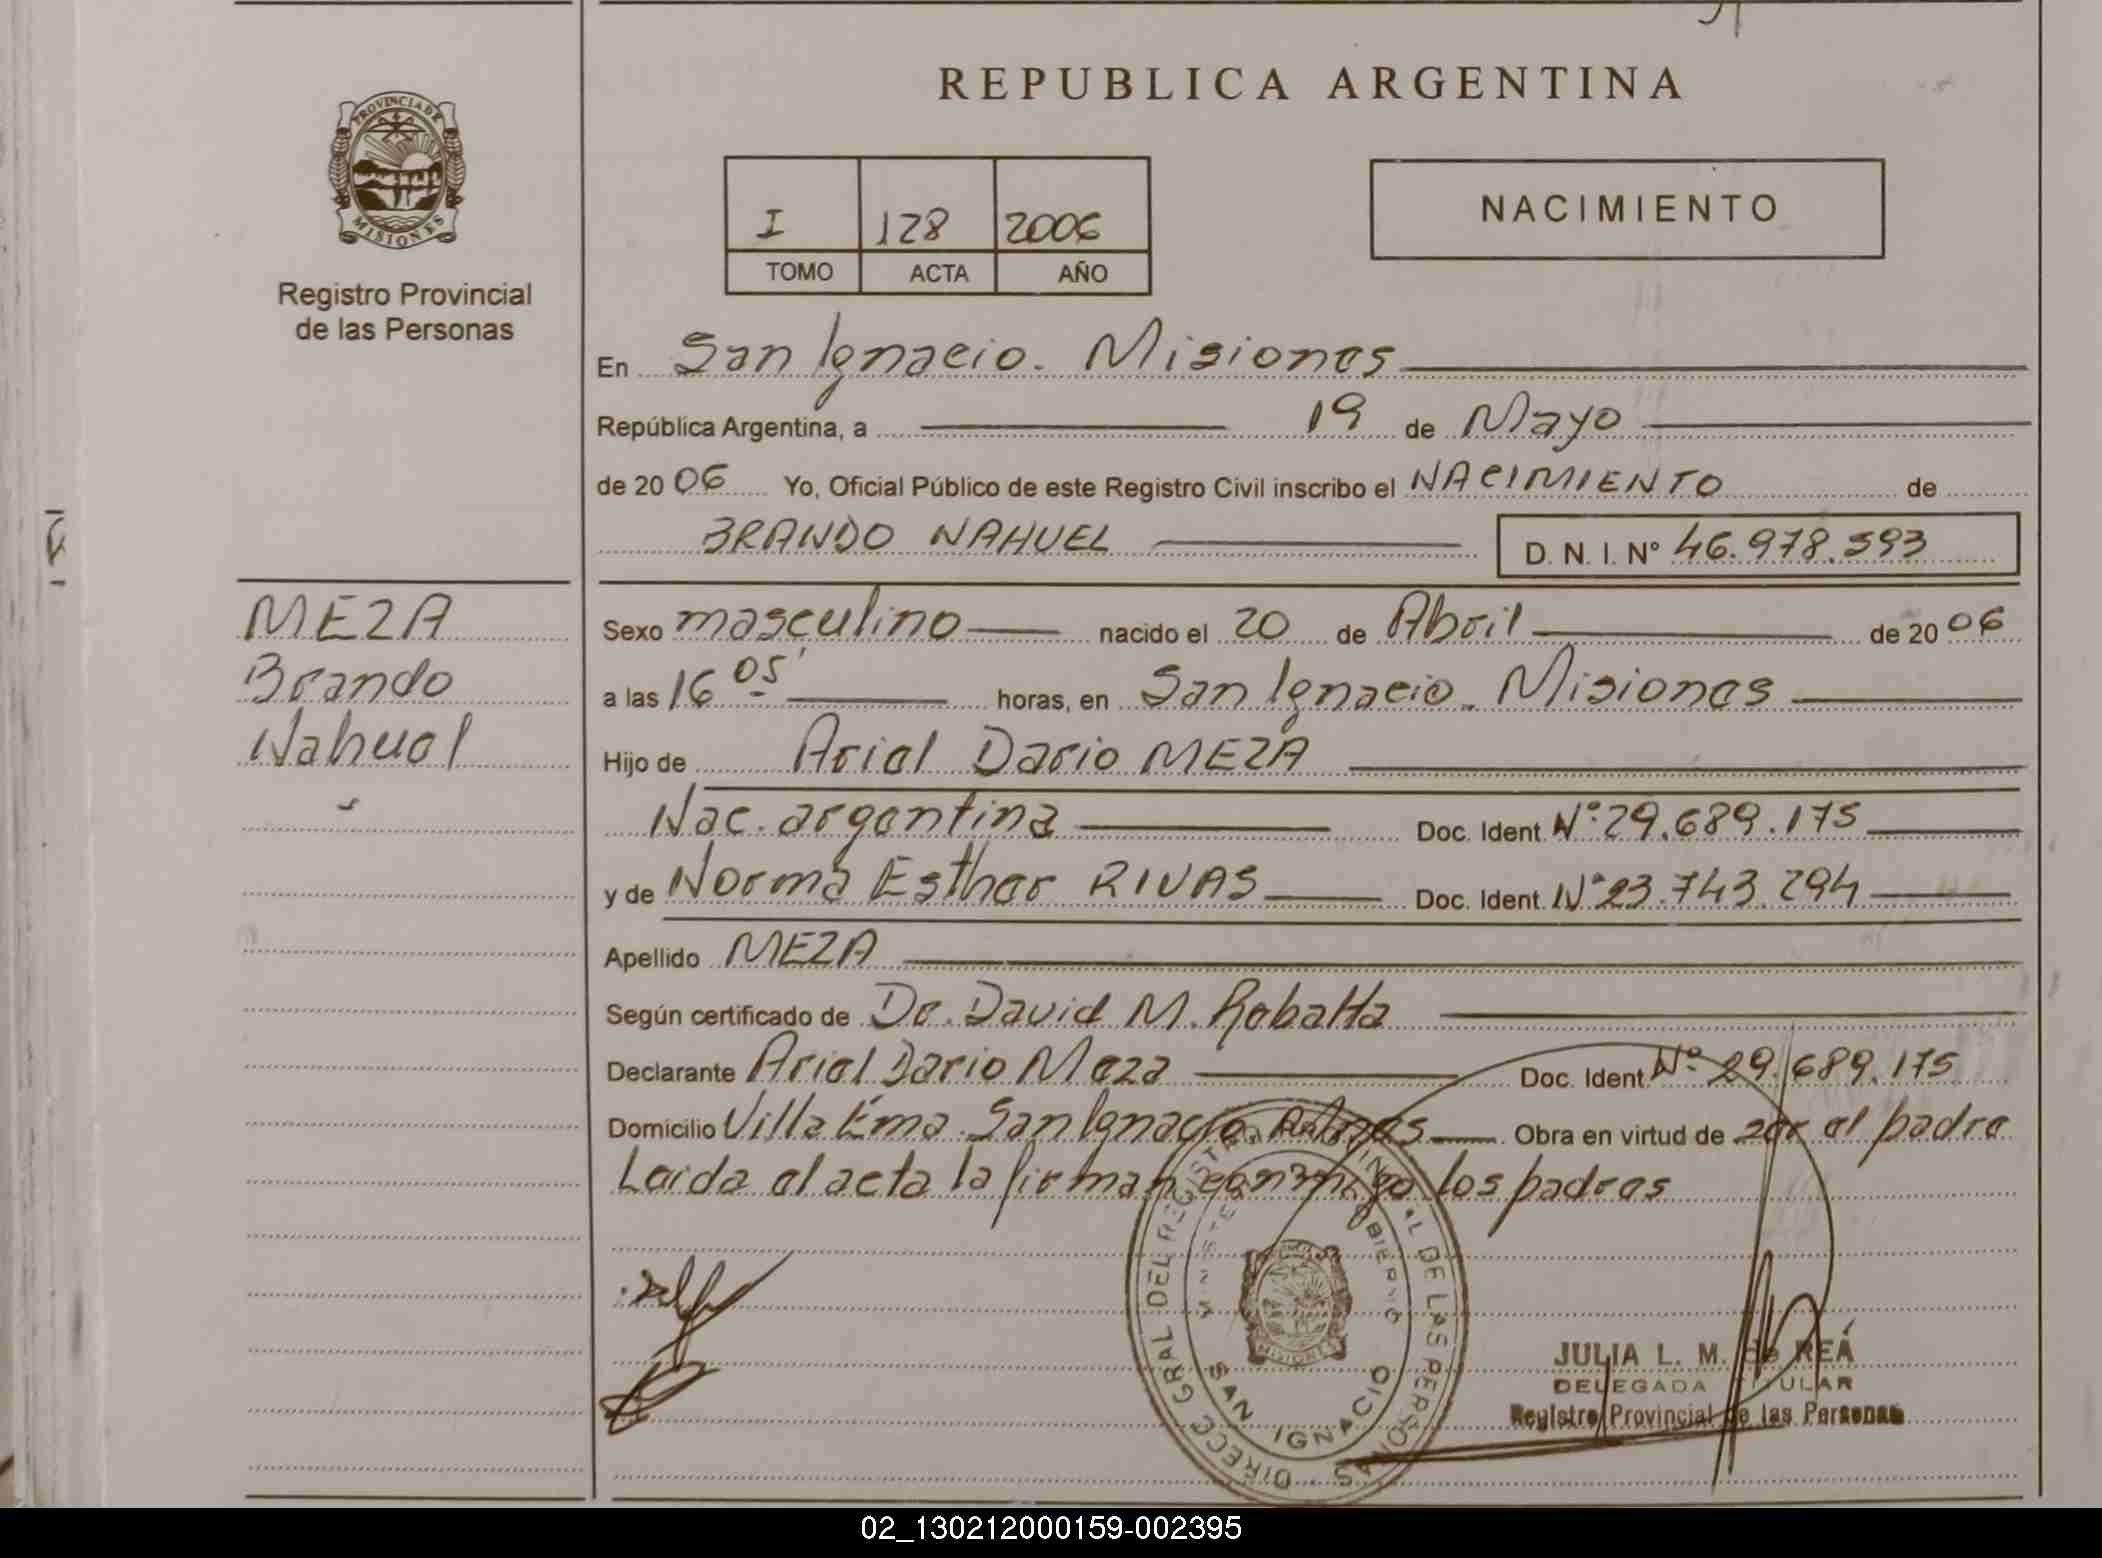 REPUBLICA ARGENTINA
PROVINCIA DE MISIONES
Registro Provincial
de las Personas
I 128 2006
TOMO ACTA AÑO
NACIMIENTO
En San Ignacio. Misiones
República Argentina, a 19 de Mayo
de 20 06 Yo, Oficial Público de este Registro Civil inscribo el NACIMIENTO de
BRANDO NAHUEL D. N. I. N° 46.978.593
MEZA
Brando
Nahuel
Sexo masculino nacido el 20 de Abril de 20 06
a las 16 05' horas, en San Ignacio. Misiones
Hijo de Ariel Dario MEZA
Nac. argentina Doc. Ident. N° 29.689.175
y de Norma Esther RIVAS Doc. Ident. N° 23.743.294
Apellido MEZA
Según certificado de Dr. David M. Robatta
Declarante Ariel Dario Meza Doc. Ident. N° 29.689.175
Domicilio Villa Ema. San Ignacio. Obra en virtud de ser el padre
Leida el acta la firman conmigo los padres
DIRECC GRAL DEL REGISTRO PROVINCIAL DE LAS PERSONAS
MINISTERIO GOBIERNO
MISIONES
SAN IGNACIO
JULIA L. M. de REÁ
DELEGADA TITULAR
Registro Provincial de las Personas
02_130212000159-002395